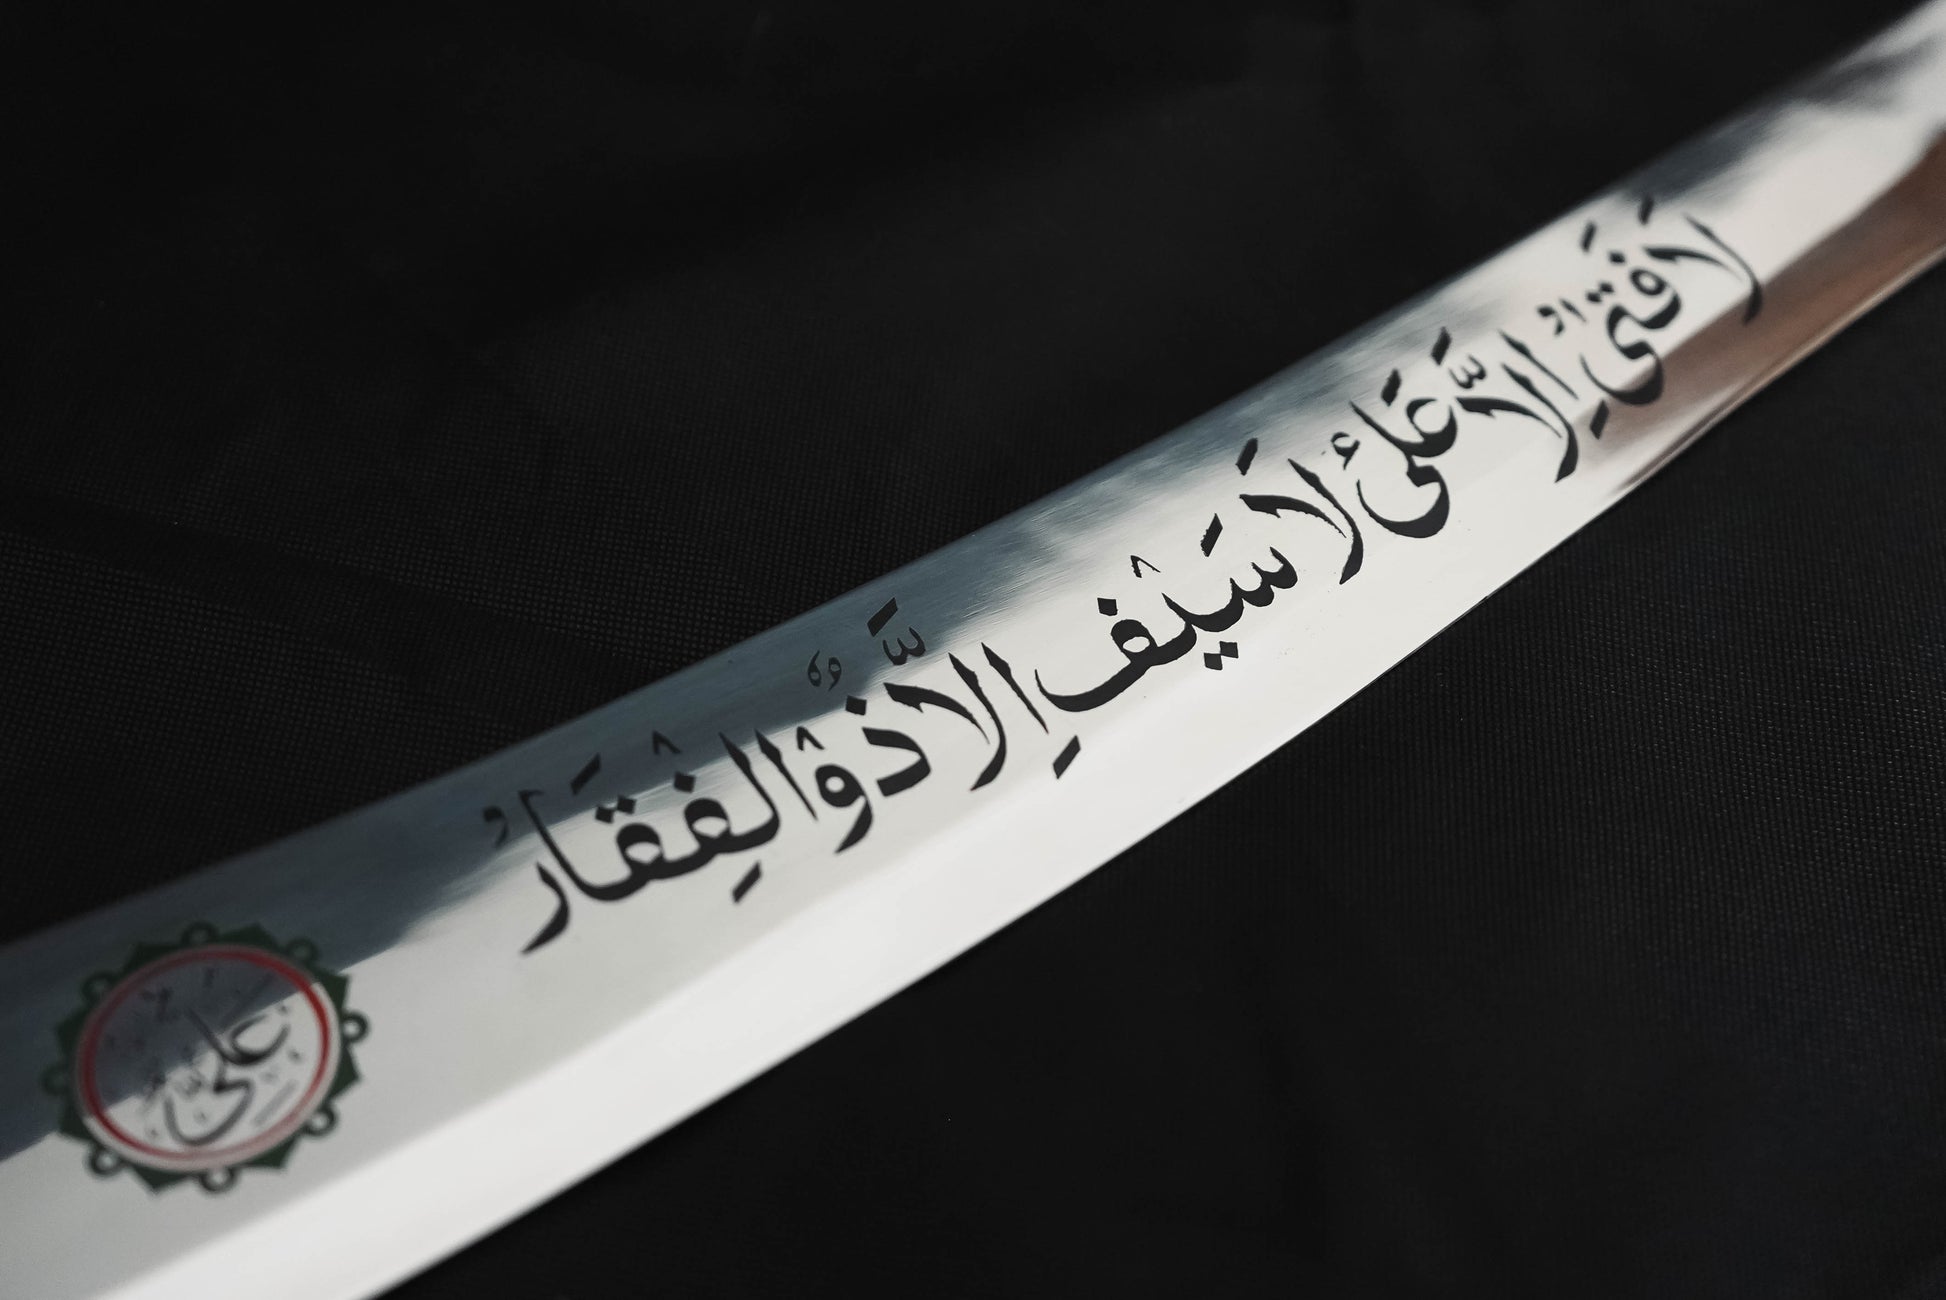 لَا فَتَى إِلَّا عَلِي لَا سَيْف إِلَّا ذُوْالفِقَار
علي